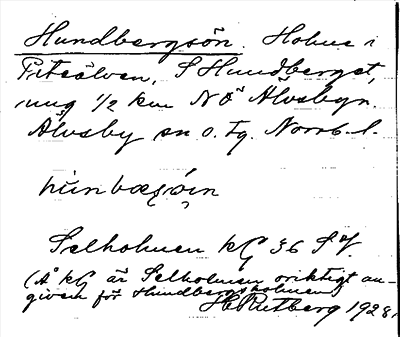 Hundbergsön. Holme i
Piteälven, S Hundberget,
ung 1/2 km NÖ Älvsbyn.
Älvsby sn o. tg. Norrb. l.
Selholmen kG 36 SV.
(Å kG är Selholmen oriktigt an-
given för Hundbergsholmen)
H Rutberg 1928.